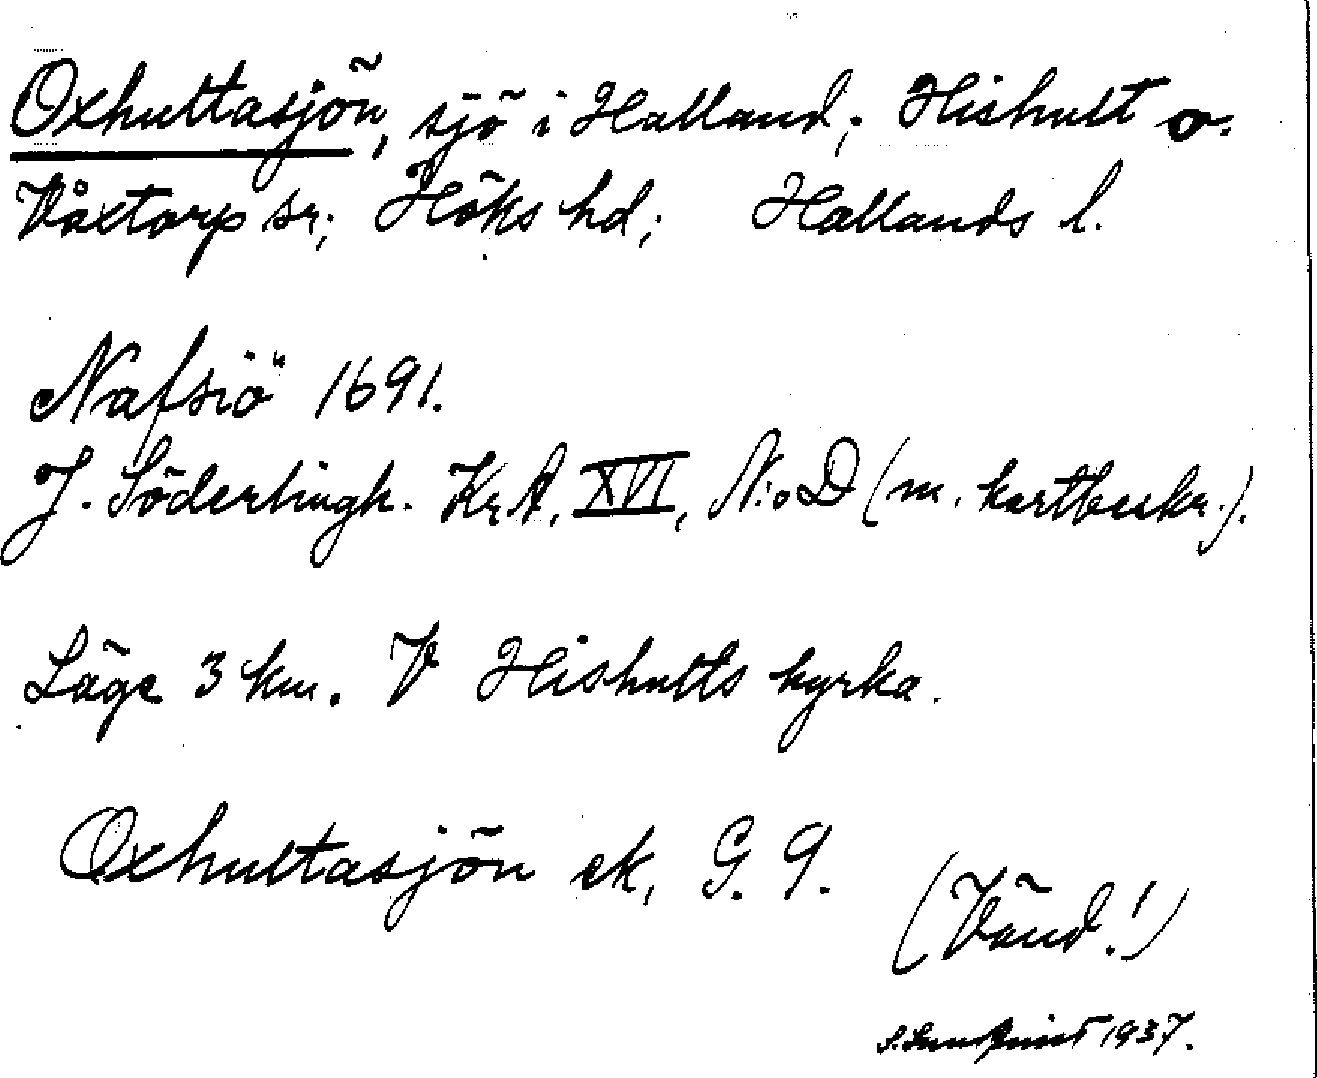 Oxhultasjön, sjö i Halland; Hishult o.
Våxtorp sr; Höks hd; Hallands l.
Nafsiö 1691.
J. Söderlingh. Kr.A. XVI, N:o D (m. kartbeskr.).
Läge 3 km. V Hishults kyrka.
Oxhultasjön ek, G. 9.
(Vänd!)
S. Sundquist 1937.